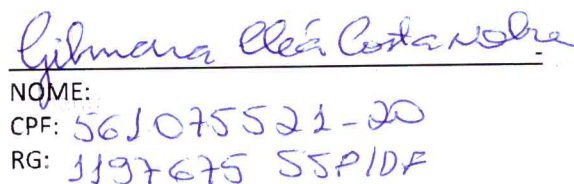 Gilmara Cleá Costa Nobre
NOME:
CPF: 561075521-20
RG: 1197675 SSP/DF